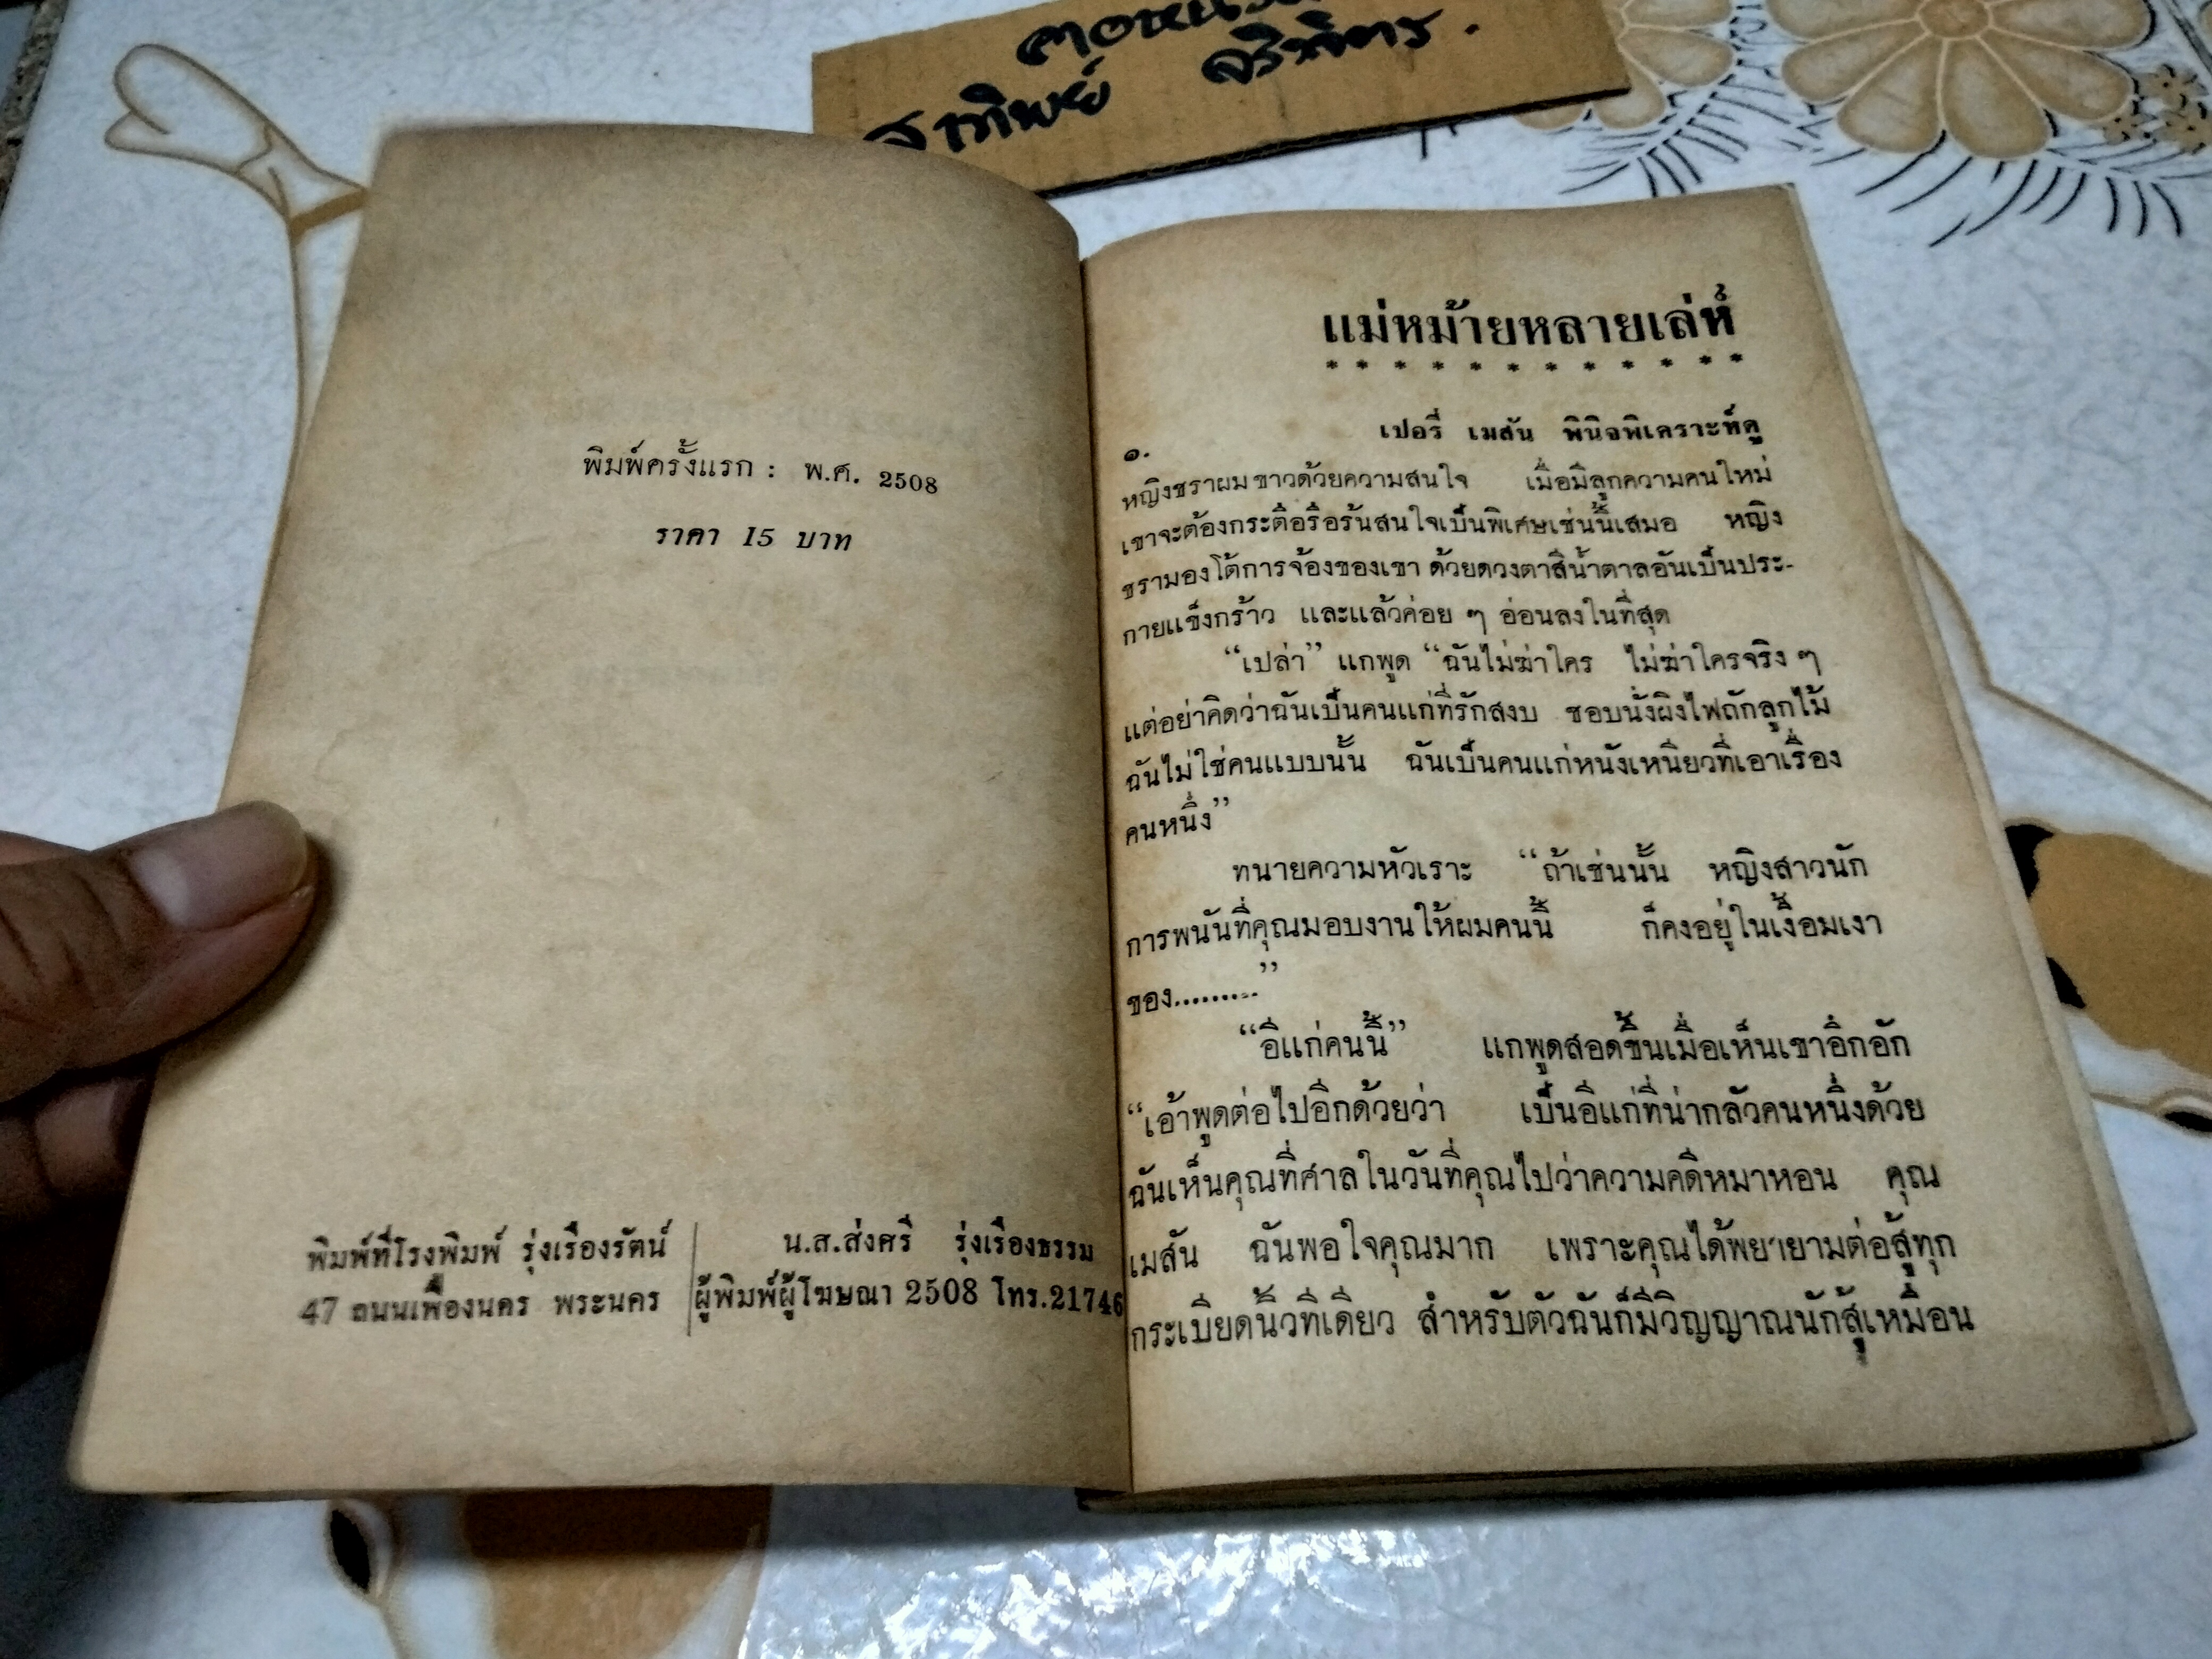 สาทิพย์ จริพัทร.
พิมพ์ครั้งแรก : พ.ศ. 2508
ราคา 15 บาท
พิมพ์ที่โรงพิมพ์ รุ่งเรืองรัตน์
47 ถนนเฟื่องนคร พระนคร
น.ส.ส่งศรี รุ่งเรืองธรรม
ผู้พิมพ์ผู้โฆษณา 2508 โทร.21746
แม่หม้ายหลายเล่ห์
* * * * * * * * * * * *
๑.
เปอรี่ เมสัน พินิจพิเคราะห์ดู
หญิงชราผมขาวด้วยความสนใจ เมื่อมีลูกความคนใหม่
เขาจะต้องกระตือรือร้นสนใจเป็นพิเศษเช่นนี้เสมอ หญิง
ชรามองโต้การจ้องของเขา ด้วยดวงตาสีน้ำตาลอันเป็นประ-
กายแข็งกร้าว และแล้วค่อย ๆ อ่อนลงในที่สุด
“เปล่า” แกพูด “ฉันไม่ฆ่าใคร ไม่ฆ่าใครจริง ๆ
แต่อย่าคิดว่าฉันเป็นคนแก่ที่รักสงบ ชอบนั่งผิงไฟถักลูกไม้
ฉันไม่ใช่คนแบบนั้น ฉันเป็นคนแก่หนังเหนียวที่เอาเรื่อง
คนหนึ่ง”
ทนายความหัวเราะ “ถ้าเช่นนั้น หญิงสาวนัก
การพนันที่คุณมอบงานให้ผมคนนี้ ก็คงอยู่ในเงื้อมเงา
ของ.........”
“อีแก่คนนี้” แกพูดสอดขึ้นเมื่อเห็นเขาอึกอัก
“เอ้าพูดต่อไปอีกด้วยว่า เป็นอีแก่ที่น่ากลัวคนหนึ่งด้วย
ฉันเห็นคุณที่ศาลในวันที่คุณไปว่าความคดีหมาหอน คุณ
เมสัน ฉันพอใจคุณมาก เพราะคุณได้พยายามต่อสู้ทุก
กระเบียดนิ้วทีเดียว สำหรับตัวฉันก็มีวิญญาณนักสู้เหมือน